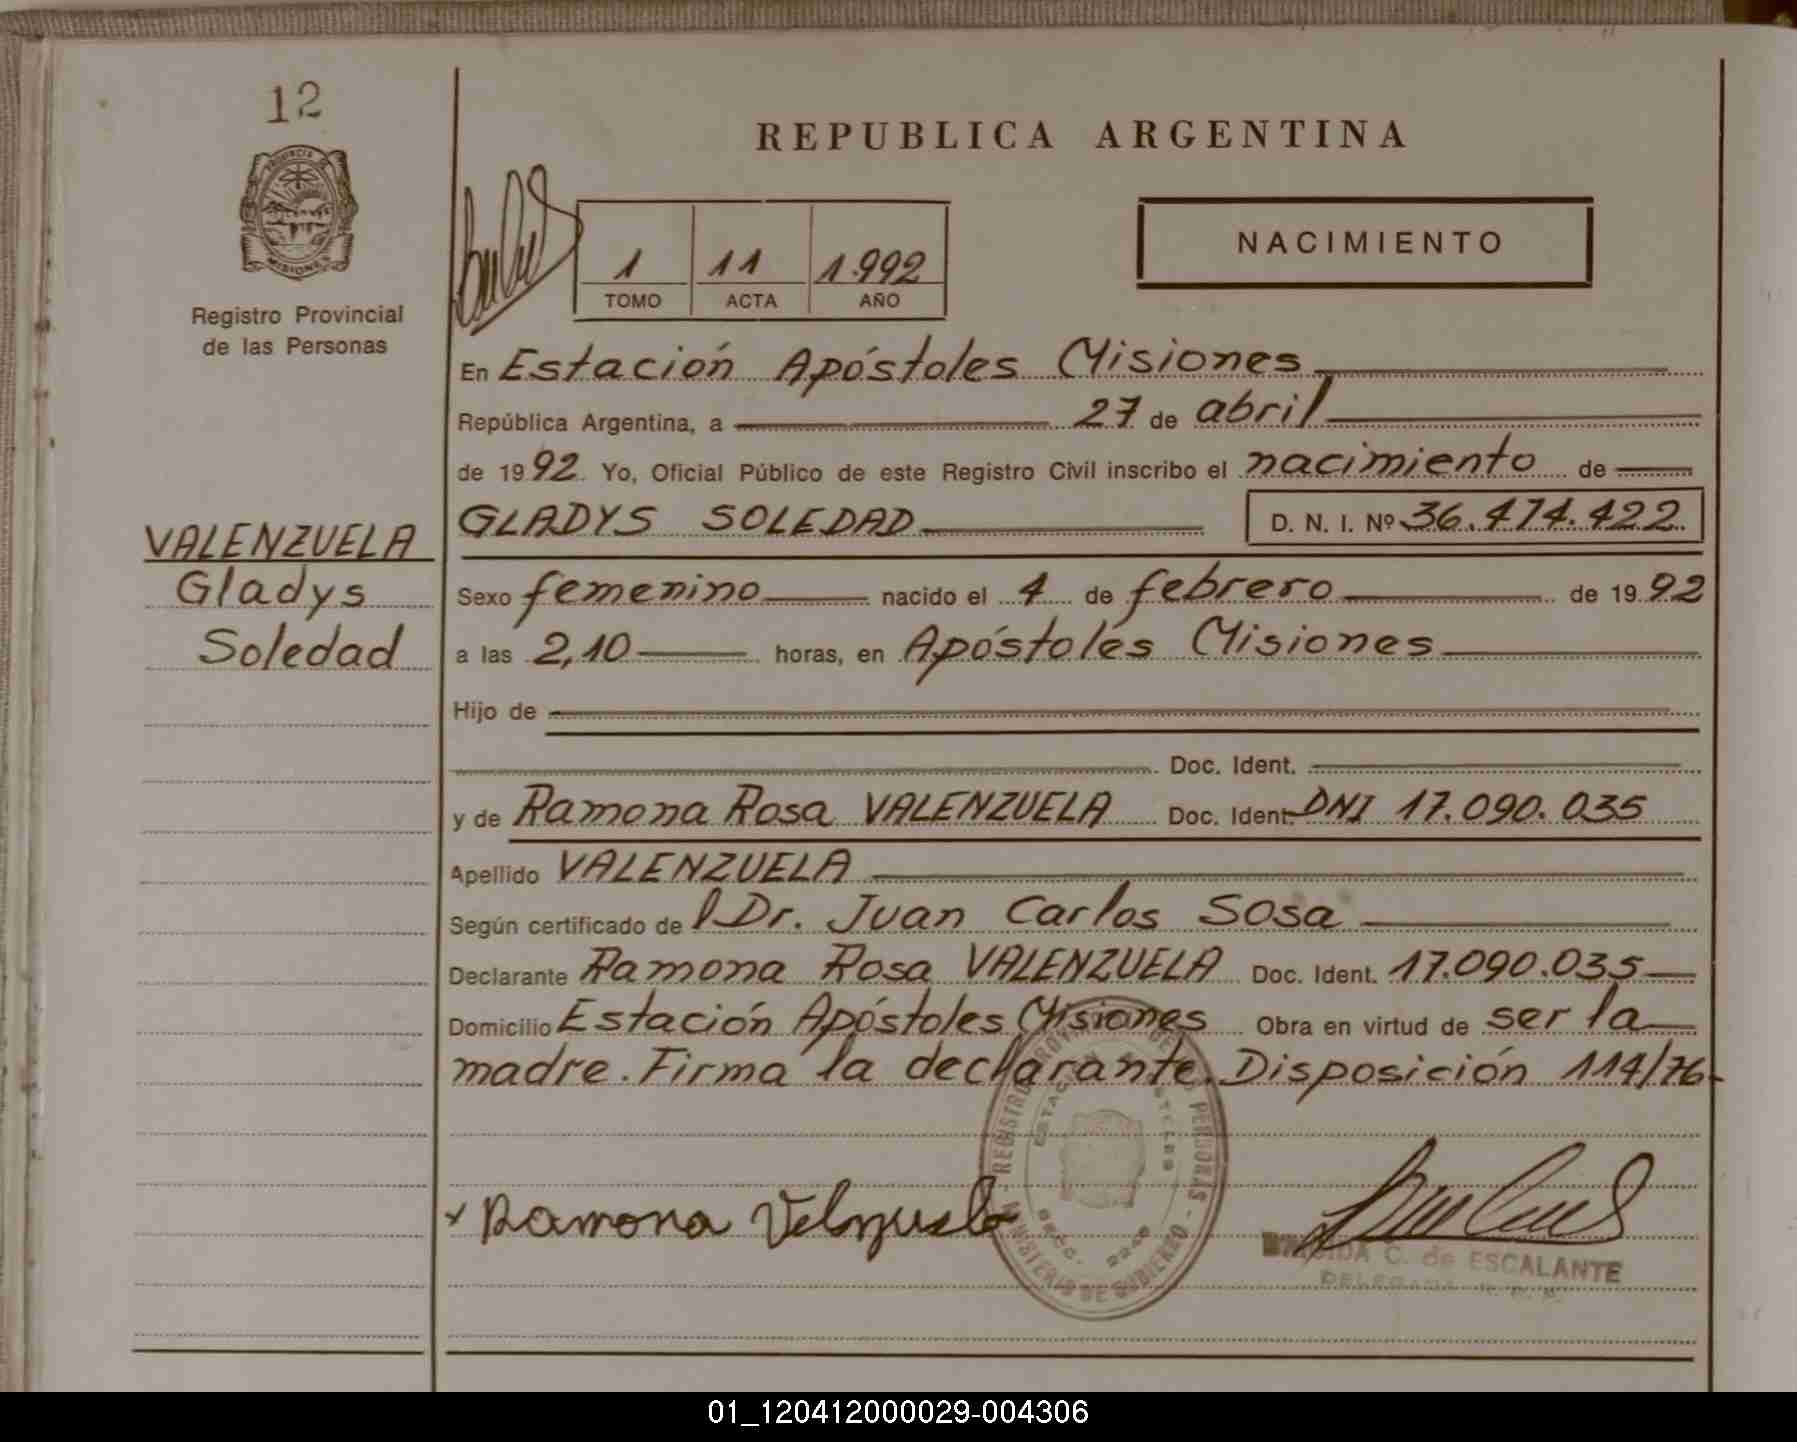 12
REPUBLICA ARGENTINA
PROVINCIA DE
MISIONES
Registro Provincial
de las Personas
1 11 1.992
TOMO ACTA AÑO
NACIMIENTO
En Estación Apóstoles Misiones
República Argentina, a 27 de abril
de 1992 Yo, Oficial Público de este Registro Civil inscribo el nacimiento de
GLADYS SOLEDAD D. N. I. Nº 36.474.422
VALENZUELA
Gladys
Soledad
Sexo femenino nacido el 4 de febrero de 1992
a las 2,10 horas, en Apóstoles Misiones
Hijo de
Doc. Ident.
y de Ramona Rosa VALENZUELA Doc. Ident. DNI 17.090.035
Apellido VALENZUELA
Según certificado de l Dr. Juan Carlos Sosa
Declarante Ramona Rosa VALENZUELA Doc. Ident. 17.090.035
Domicilio Estación Apóstoles Misiones Obra en virtud de ser la
madre. Firma la declarante. Disposición 114/76-
Ramona Velnzuela
REGISTRO PROVINCIAL DE LAS PERSONAS - MINISTERIO DE GOBIERNO
ESTACION APOSTOLES
SECC. 2240
C. de ESCALANTE
DELEGADA R. P. P.
01_120412000029-004306